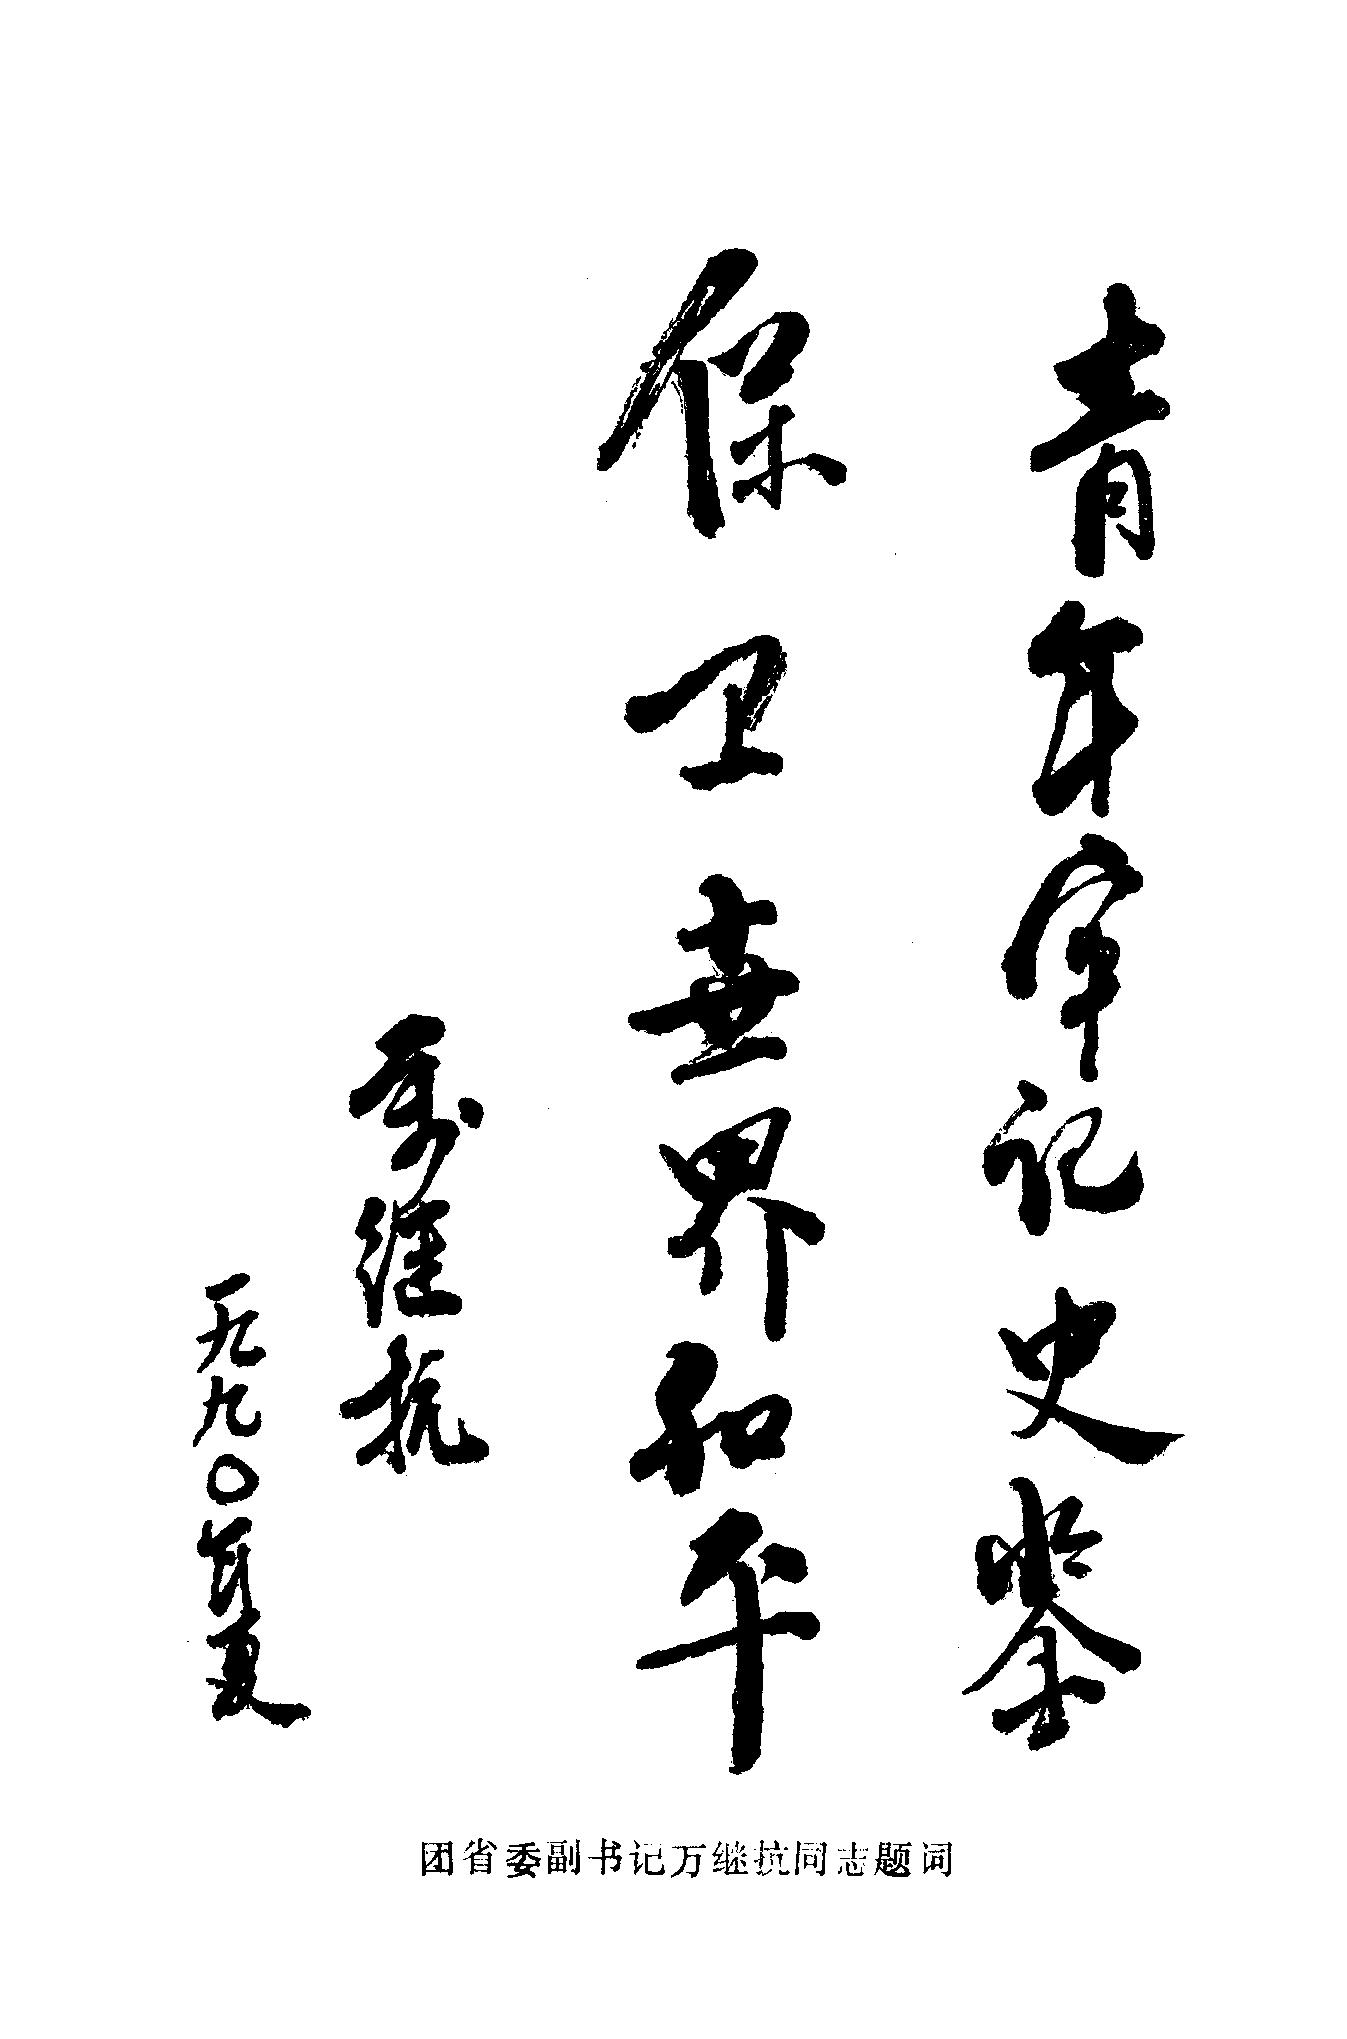 青年牢记史鉴
保卫世界和平
万继抗
一九九〇年夏
团省委副书记万继抗同志题词